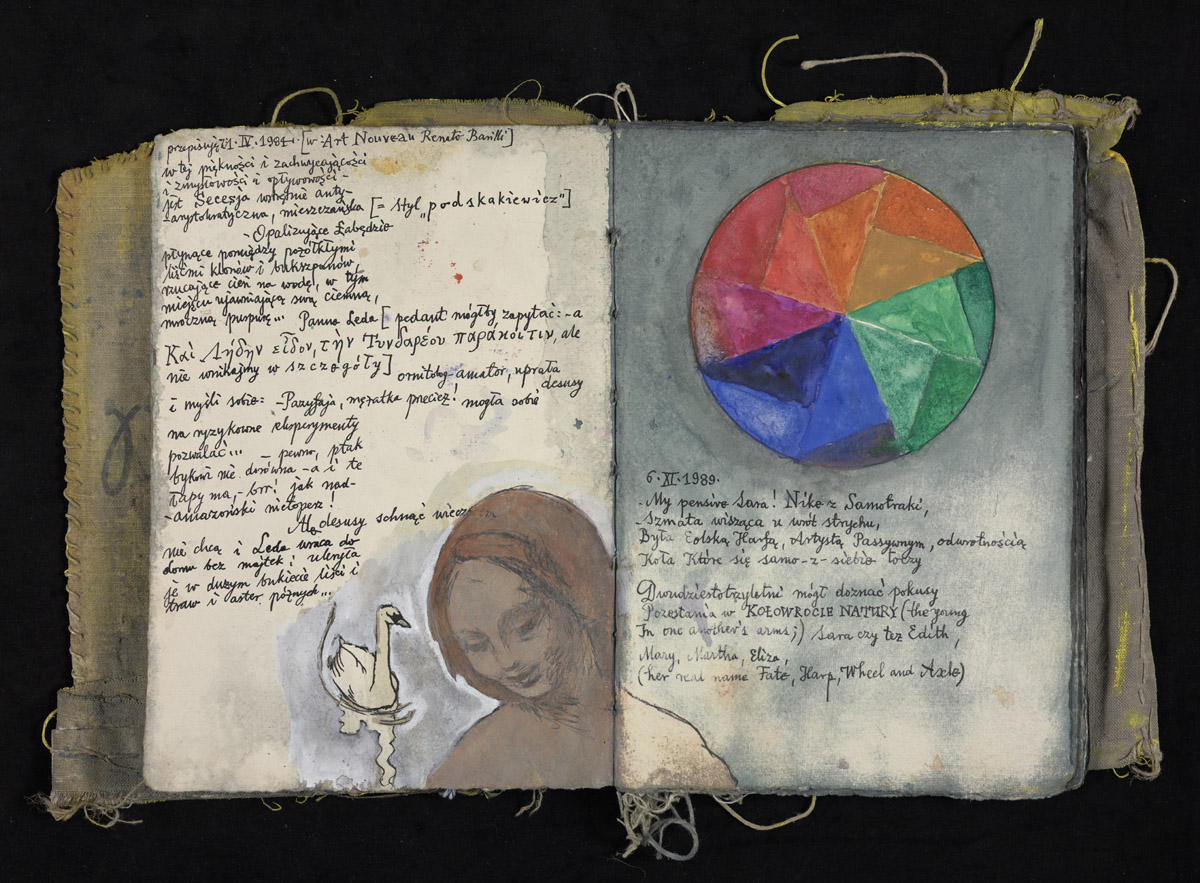 przepisuję 1.IV.1984. [w Art Nouveau Renato Barilli]
w tej piękności i zachwycającości
i zmysłowości i opływowości -
jest Secesja wstrętnie anty-
-arystokratyczna, mieszczańska [= styl „podskakiewicz”]
- Opalizujące Łabędzie
płynące pomiędzy pożółkłymi
liśćmi klonów i bukszpanów,
rzucające cień na wodę, w tym
miejscu ujawniającą swą ciemną,
mroczną purpurę... Panna Leda [pedant mógłby zapytać: - a
Καὶ Λήδην εἶδον, τὴν Τυνδαρέου παράκοιτιν, ale
nie wnikajmy w szczegóły] ornitolog-amator, uprała
desusy
i myśli sobie: - Pazyfaja, mężatka przecież! mogła sobie
na ryzykowne eksperymenty
pozwalać... - pewno, ptak
bykowi nie dorówna - a i te
łapy ma, - brr! jak nad-
-amazoński nietoperz!
Ale desusy schnąć
nie chcą i Leda wraca do
domu bez majtek: ukryła
je w dużym bukiecie liści i
traw i aster późnych...
6.XI.1989.
- My pensive Sara! Nike z Samotraki,
Szmata wisząca u wrót strychu,
Była Eolską Harfą, Artystą Passywnym, odwrotnością
Koła Które się samo-z-siebie toczy
Dwudziestotrzyletni mógł doznać pokusy
Pozostania w KOŁOWROCIE NATURY (the young
In one another's arms;) Sara czy też Edith,
Mary, Martha, Eliza,
(her real name Fate, Harp, Wheel and Axle)